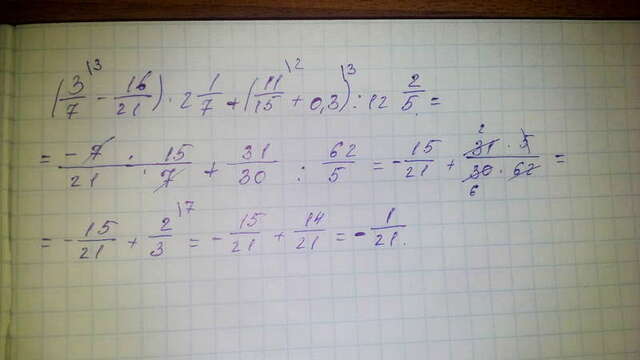 (3/7 \3 - 16/21) · 2 1/7 + (11/15 \2 + 0,3 \3) : 12 2/5 =
= - 7/21 · 15/7 + 31/30 : 62/5 = - 15/21 + 31 · 5/30 · 62 =
= - 15/21 + 2/3 \7 = - 15/21 + 14/21 = - 1/21.